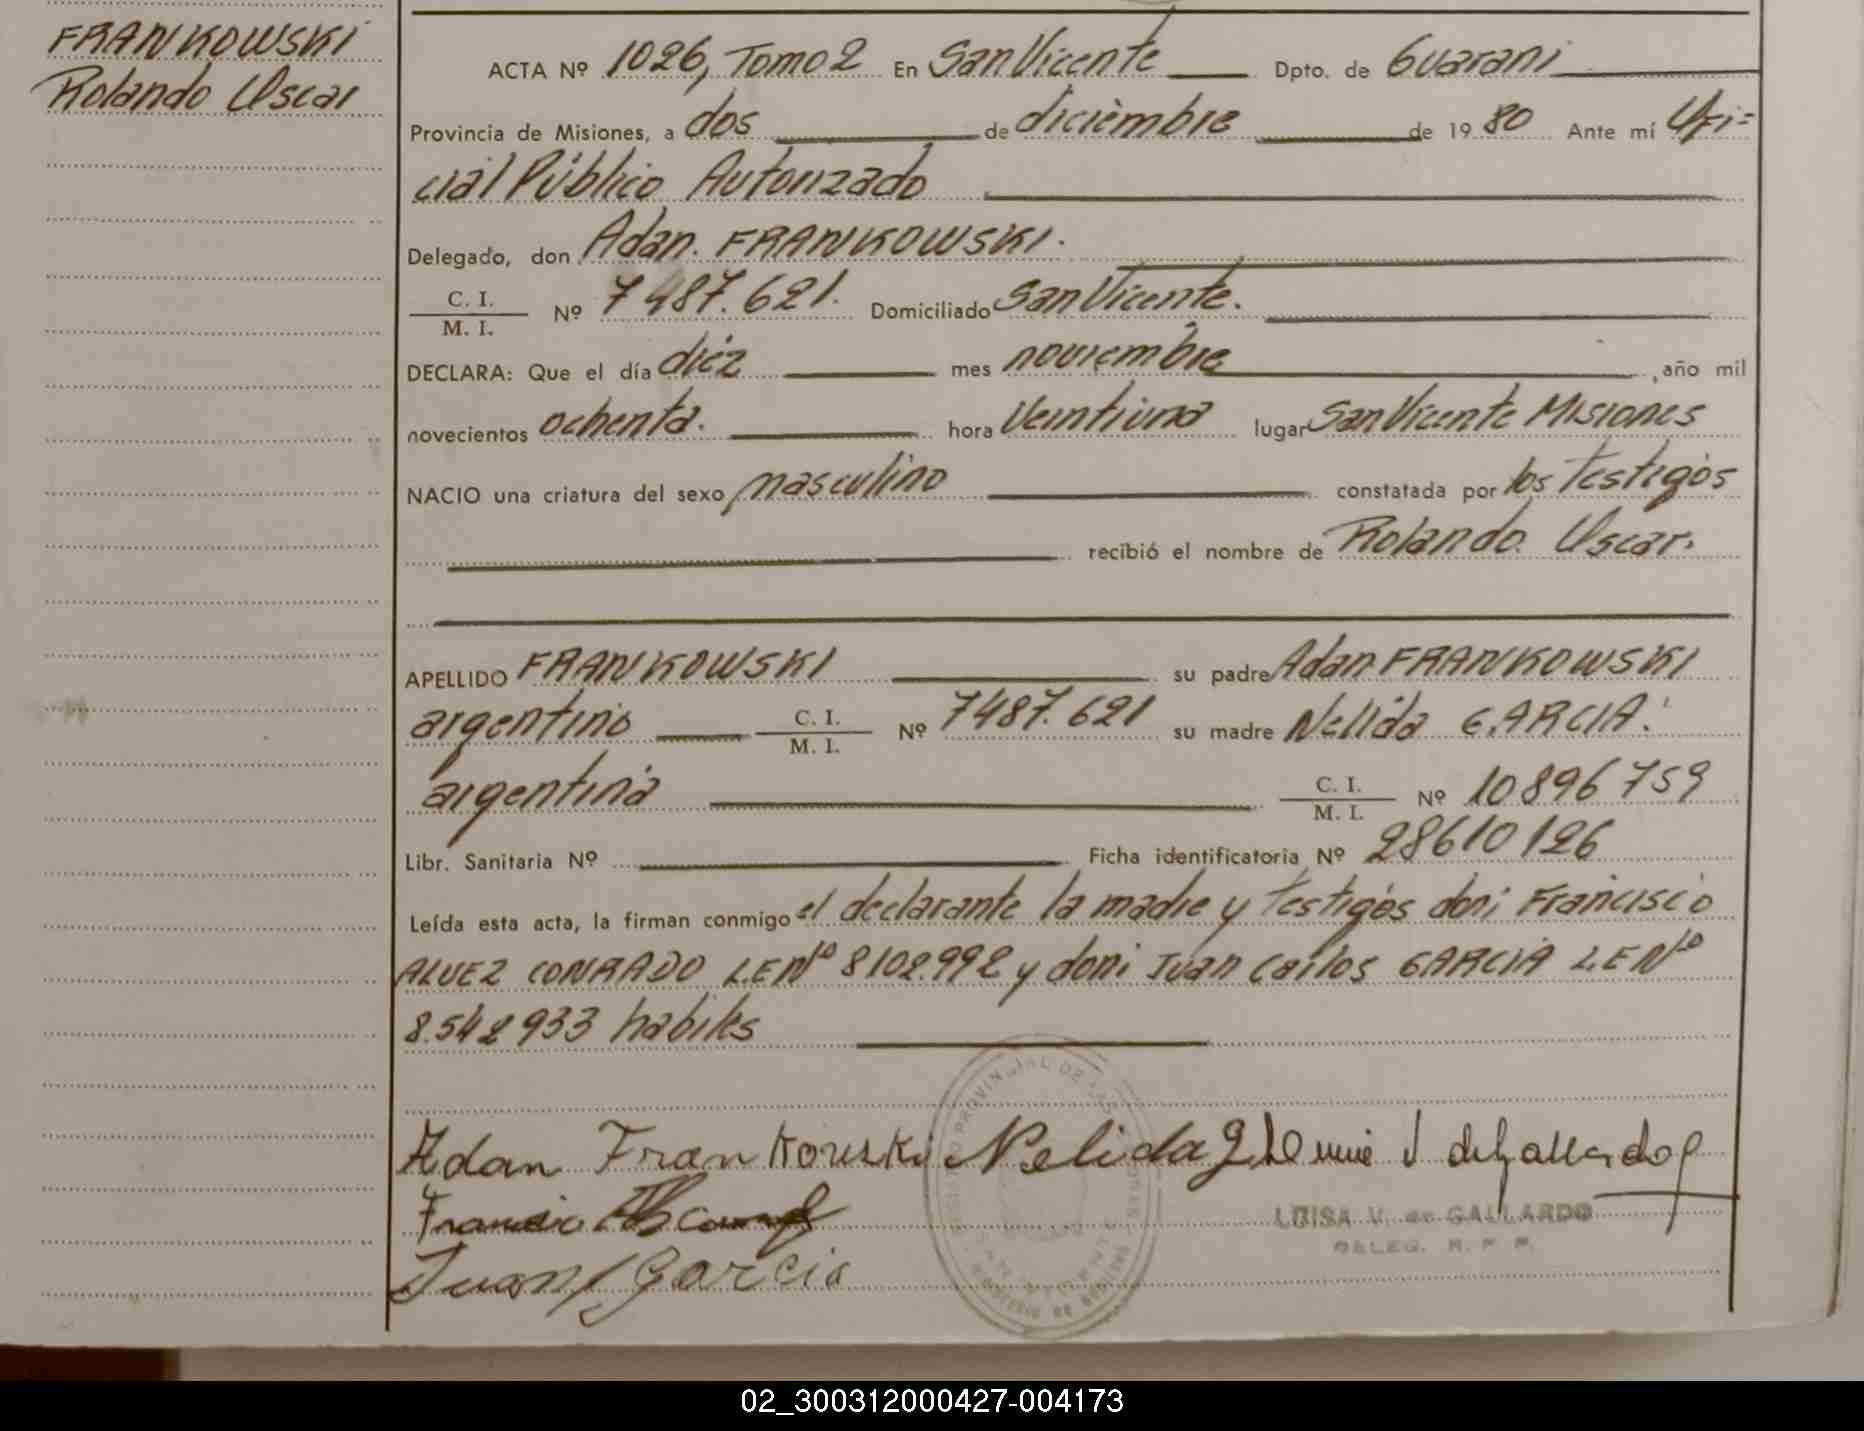 FRANKOWSKI
Rolando Oscar
ACTA Nº 1026, Tomo 2 En San Vicente Dpto. de Guarani
Provincia de Misiones, a dos de diciembre de 19 80 Ante mí Ofi=
cial Público Autorizado
Delegado, don Adan. FRANKOWSKI.
C. I.
M. I. Nº 7487.621. Domiciliado San Vicente.
DECLARA: Que el día diéz mes noviembre, año mil
novecientos ochenta. hora Veintiuna lugar San Vicente Misiones
NACIO una criatura del sexo masculino constatada por los Testigos
recibió el nombre de Rolando Oscar.
APELLIDO FRANKOWSKI su padre Adan FRANKOWSKI
argentino C. I.
M. I. Nº 7487.621 su madre Nélida GARCIA.
argentina C. I.
M. I. Nº 10896759
Libr. Sanitaria Nº Ficha identificatoria Nº 28610126
Leída esta acta, la firman conmigo el declarante la madre y Testigos don: Francisco
ALVEZ CONRADO L.E Nº 8102.992 y don: Juan Carlos GARCIA L.E Nº
8.542933 habiles
Adan Frankowski Nelida G. de Gallardo
Juan Garcia
REGISTRO PROVINCIAL DE LAS PERSONAS
LUISA V. de GALLARDO
DELEG. R. P. P.
02_300312000427-004173